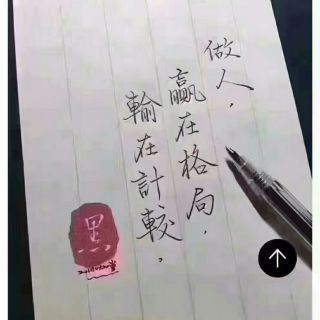 做人，
贏在格局，
輸在計較，
黑